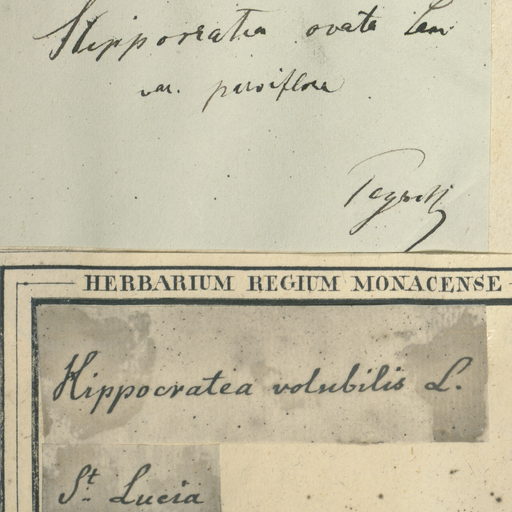 Hippocratea ovata Lam
var. parviflora
Peyritsch
HERBARIUM REGIUM MONACENSE
Hippocratea volubilis L.
St. Lucia